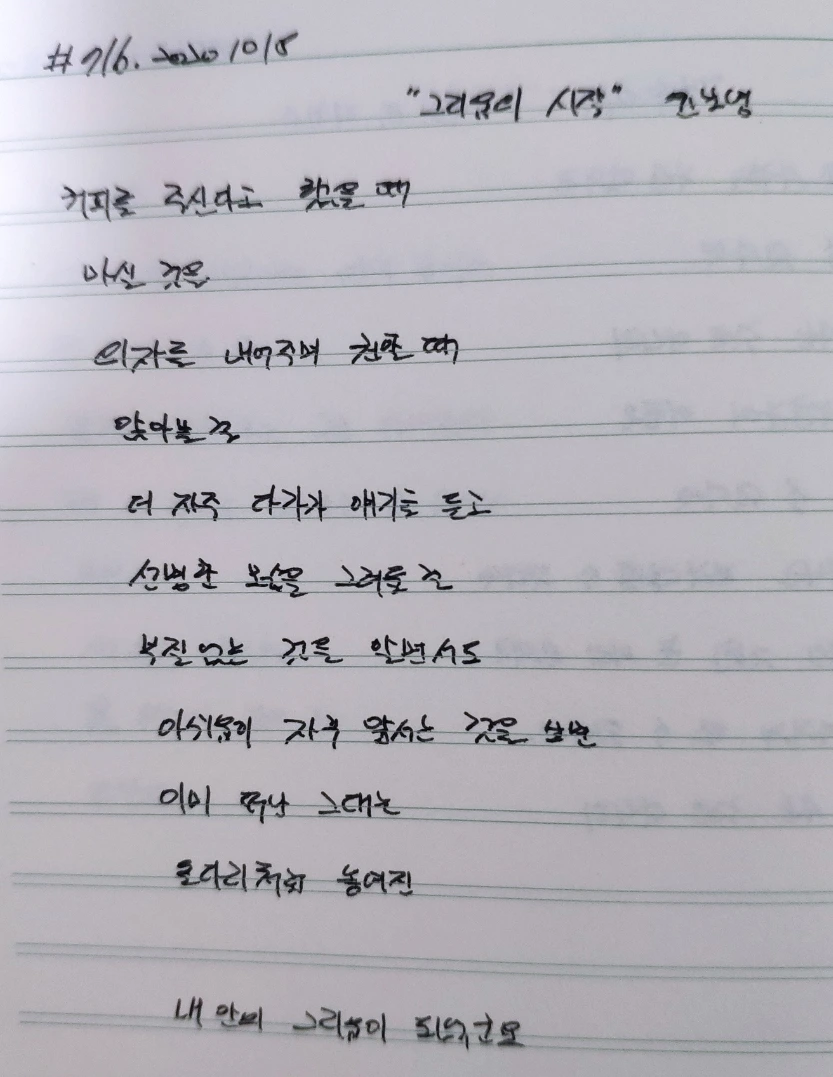 #716. 20201018
"그리움의 시작" 긴보영
커피를 주신다고 했을 때
마실 것을
의자를 내어주며 권할 때
앉아볼 걸
더 자주 다가가 얘기를 듣고
선명한 모습을 그려둘 걸
부질없는 것을 알면서도
아쉬움이 자꾸 앞서는 것을 보면
이미 떠난 그대는
놓여진
내 안에 그리움이 되었군요